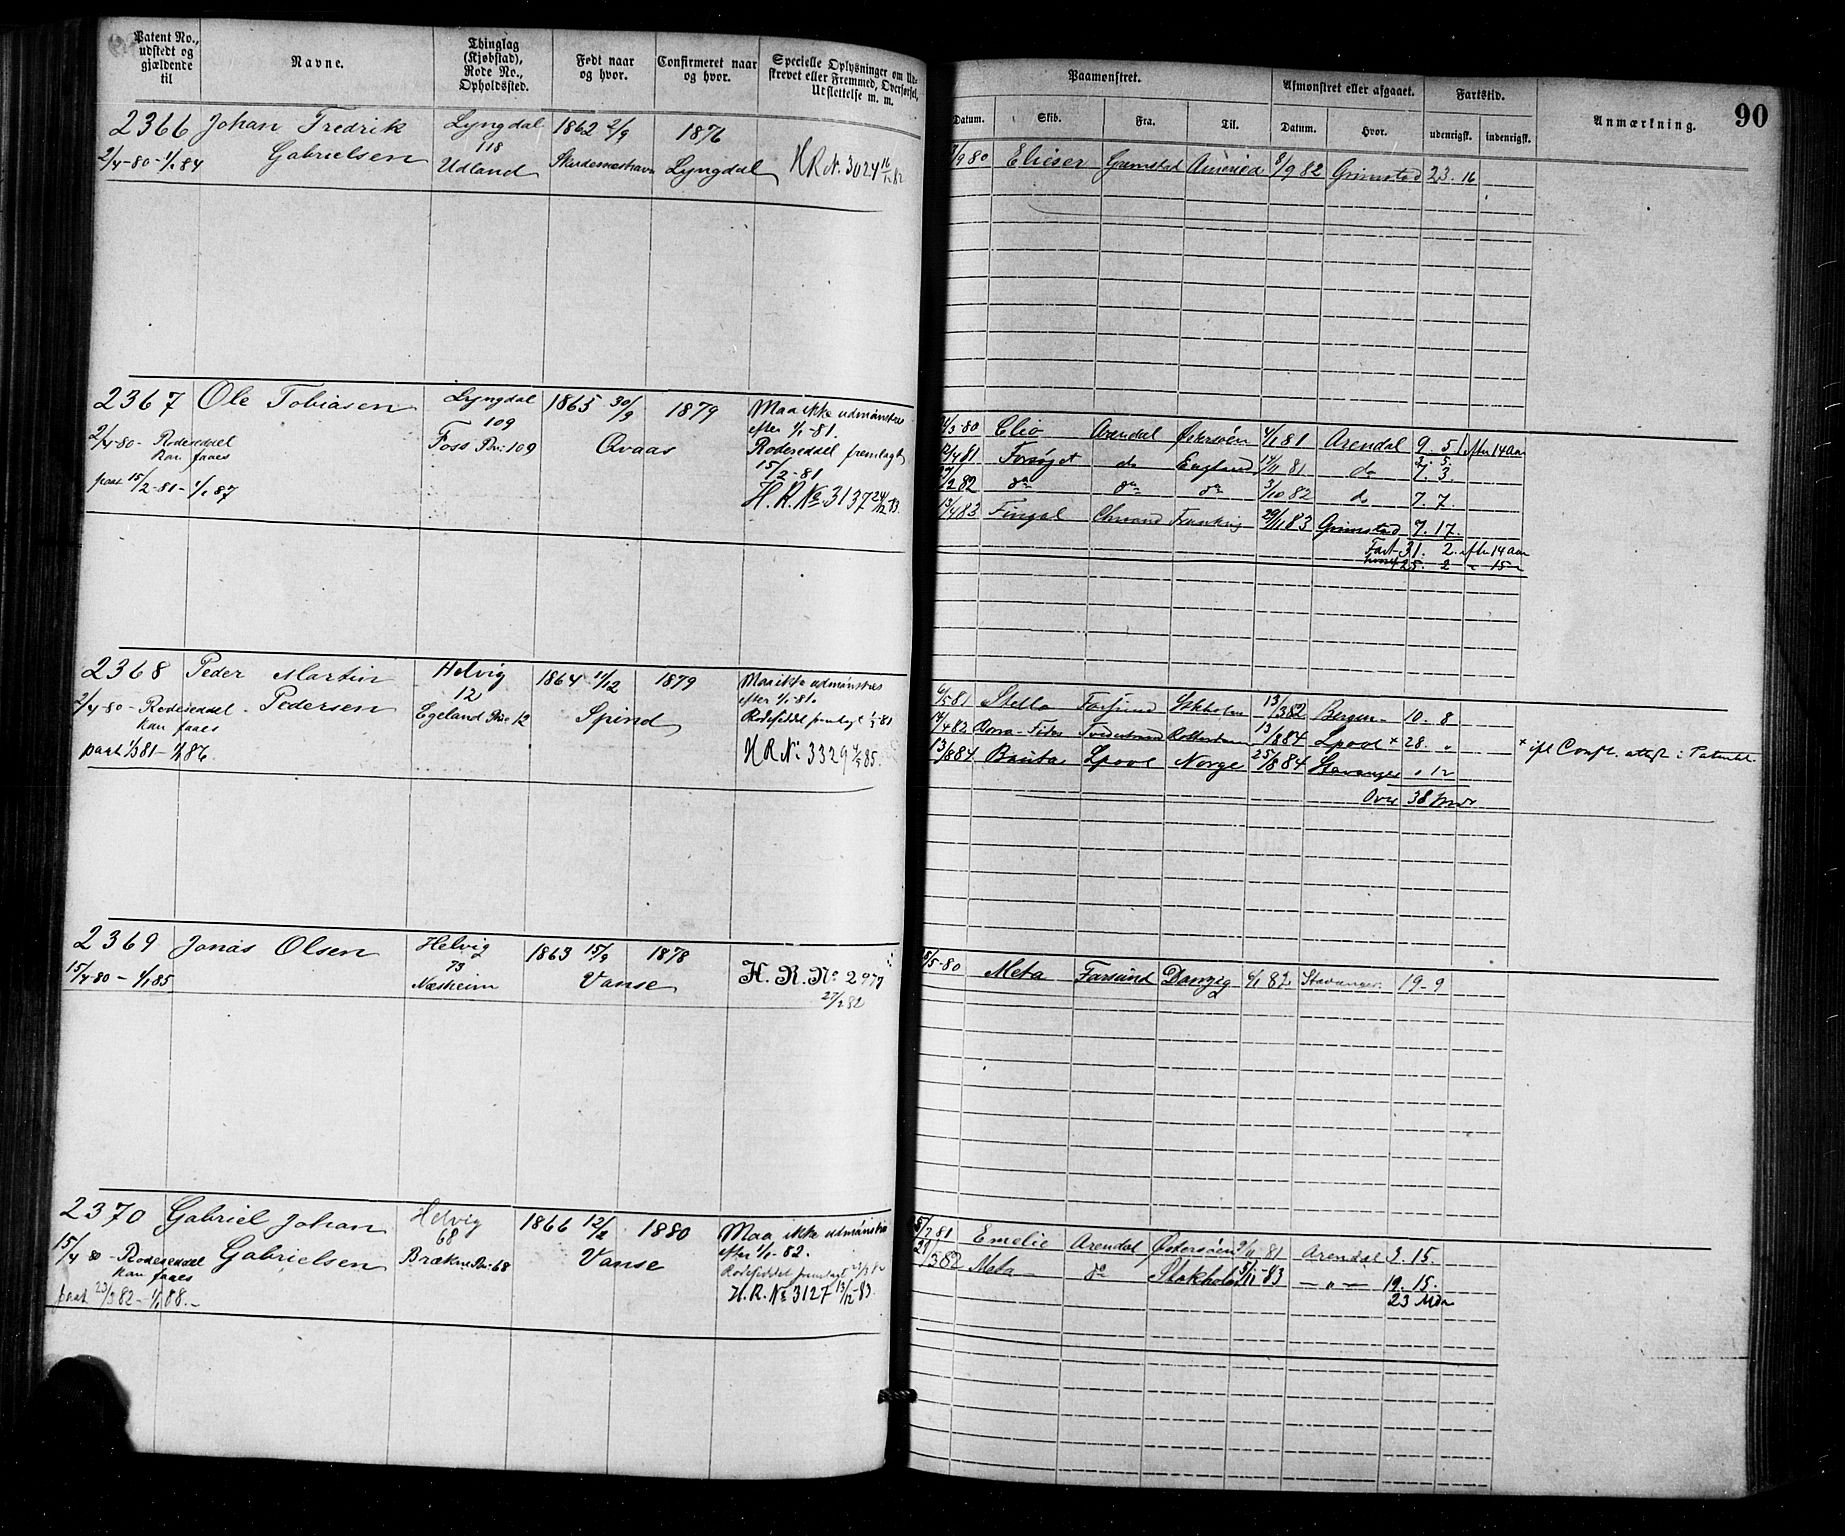 Patent No., udstedt og gjældende til
Navne.
Thinglag (Kjøbstad), Rode No., Opholdssted.
Født naar og hvor.
Confirmeret naar og hvor.
Specielle Oplysninger om Ud-
skrevet eller Fremmed, Overførsel,
Udslettelse m. m.
Paamønstret.
Afmønstret eller afgaaet.
Fartstid.
Anmærkning.
90
Datum. Skib. Fra. Til. Datum. Hvor. udenrigsk. indenrigsk.
2366 Johan Fredrik Lyngdal 1862 2/9 1876
Gabrielsen 118
2/4-80-1/1 84 Udland Skudesneshavn Lyngdal H R N. 3024 16/12 82
/9 80 Elieser Grimstad America 8/9 82 Grimstad 23. 16
2367 Ole Tobiasen Lyngdal 1865 30/9 1879 Maa ikke udmønstres
109 efter 1/1-81.
2/4-80- Rodeseddel Foss Rn: 109 Qvaas Rodeseddel fremlagt
kan faaes 15/2-81
paat 15/2-81-1/1 87 H. R. No 3137 24/12 83.
/3-80 Clio Arendal Østersøen 4/1 81 Arendal 9. 5 efter 14 Aar
/4 81 Forsøget do England 17/11 81 do 7. 3.
/2 82 do do do 3/10 82 do 7. 7.
13/4 83 Fingal Chrsand Frankrig 29/11 83 Grimstad 7. 17.
Fart 31. 2. efter 14 Aar
hvoraf 25. 2 " 15 "
2368 Peder Martin Helvig 1864 11/12 1879 Maa ikke udmønstres
Pedersen 12 efter 1/1-81.
2/4-80- Rodeseddel. Egeland Rn: 12 Spind Rodeseddel fremlagt 1/3-81
kan faaes
paat 1/3 81-1/1 86. H R No 3329 4/5 85.
6/5 81 Stella Farsund Stkholm 13/3 82 Bergen 10. 8
/4 83 Bona Fides Tvedestrand Rotterdam 13/8 84 Lpool x 28. "
13/8 84 Lpool Norge 25/8 84 Stavanger " 12
x ifl Consl. attest i Patentet
Over 38 Mdr
2369 Jonas Olsen Helvig 1863 15/9 1878
73
15/4-80-1/1 85 Næsheim Vanse H. R. No 2977
27/2 82
/5-80 Meta Farsund Danzig 6/1 82 Stavanger 19-9
2370 Gabriel Johan Helvig 1866 12/2 1880 Maa ikke udmønstres
Gabrielsen 68 efter 1/1-82.
15/4 80 - Rodeseddel Brækne Rn: 68 Vanse Rodeseddel fremlagt 23/3 82
kan faaes
paat 23/3 82-1/1 88.- H. R. No 3127 13/12-83.
5/7 81 Emelie Arendal Østersøen 9/11 81 Arendal 3. 15.
21/3 82 Meta do Stokholm 5/11-83 - " - 19. 15.
23 Mdr